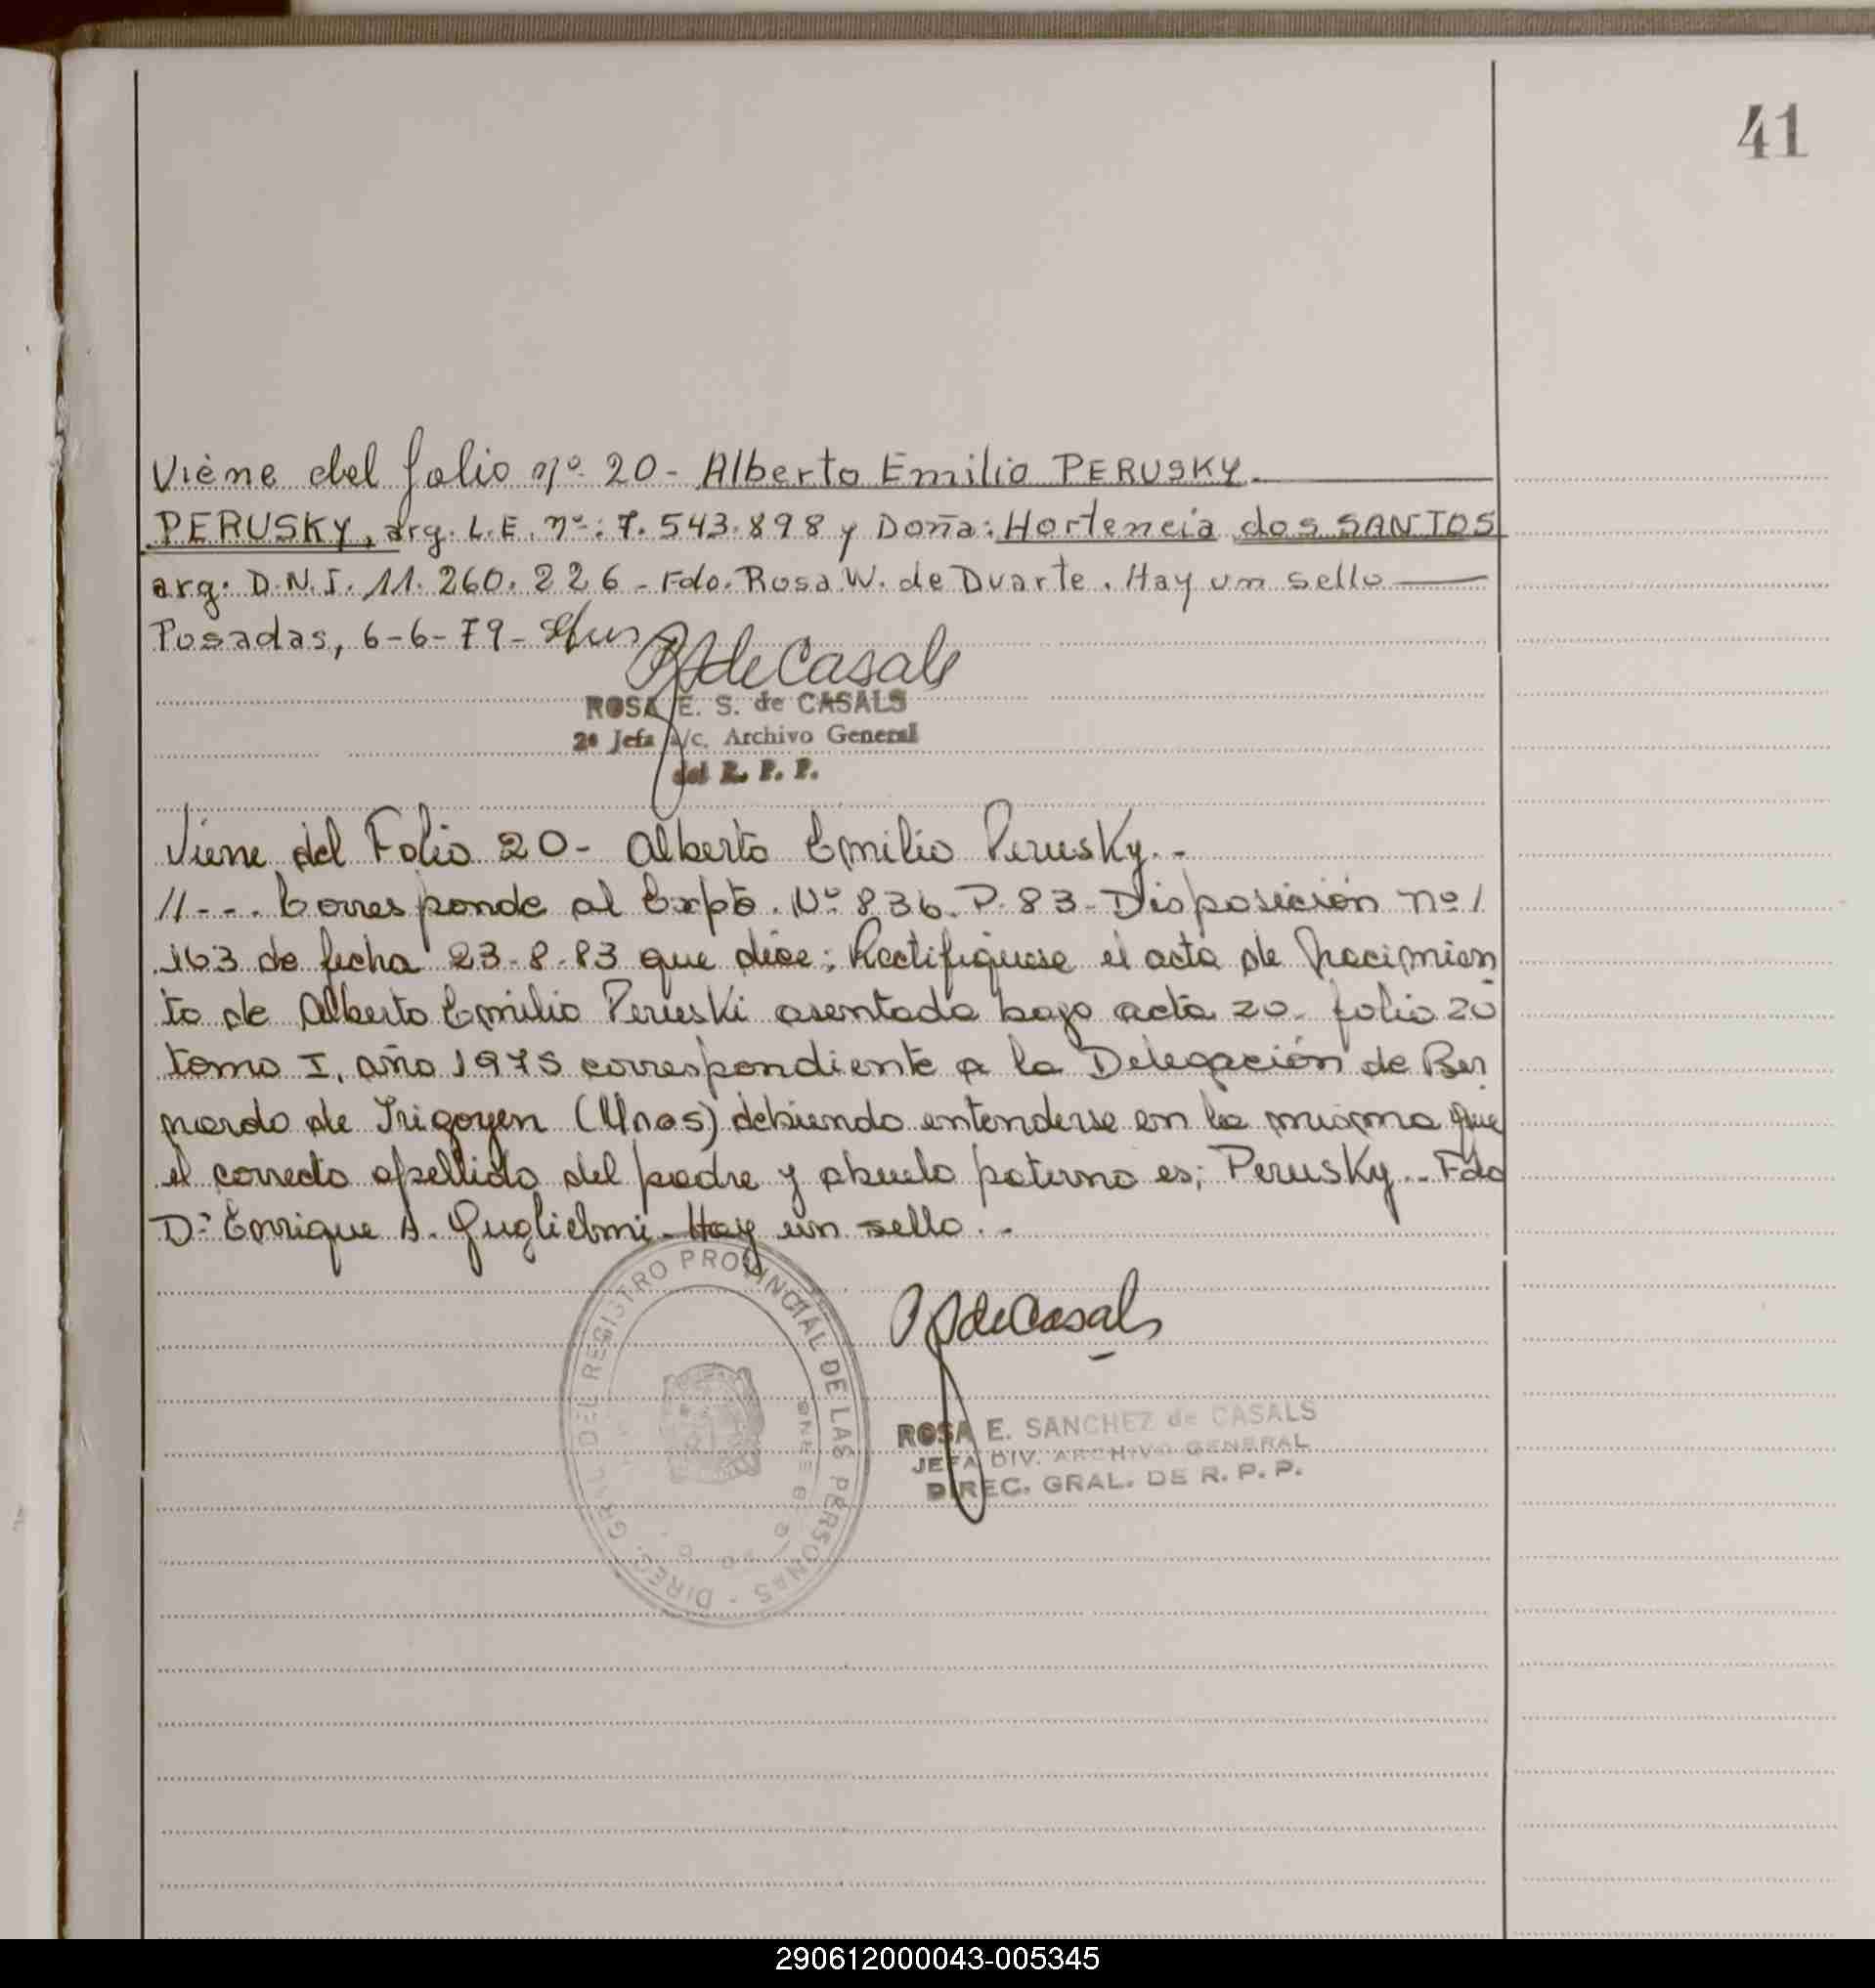 41
Viene del folio nº 20- Alberto Emilio PERUSKY.
PERUSKY, arg. L.E. nº: 7.543.898 y Doña: Hortencia dos SANTOS
arg. D.N.I. 11.260.226 - Fdo. Rosa W. de Duarte. Hay un sello
Posadas, 6-6-79-
de Casals
ROSA E. S. de CASALS
2ª Jefa a/c. Archivo General
del R. P. P.
Viene del Folio 20- Alberto Emilio Perusky.-
//---. Corresponde al Expte. Nº 836. P. 83- Disposición nº /
163 de fecha 23-8-83 que dice: Rectifíquese el acta de nacimien
to de Alberto Emilio Peruski asentada bajo acta 20- folio 20
tomo I, año 1975 correspondiente a la Delegación de Ber
nardo de Irigoyen (Mnes) debiendo entenderse en la misma que
el correcto apellido del padre y abuelo paterno es; Perusky.- Fdo
Dr Enrique A. Guglielmi- Hay un sello.-
DIREC. GRAL. DEL REGISTRO PROVINCIAL DE LAS PERSONAS -
de Casals
ROSA E. SANCHEZ de CASALS
JEFA DIV. ARCHIVO GENERAL
DIREC. GRAL. DE R. P. P.
290612000043-005345